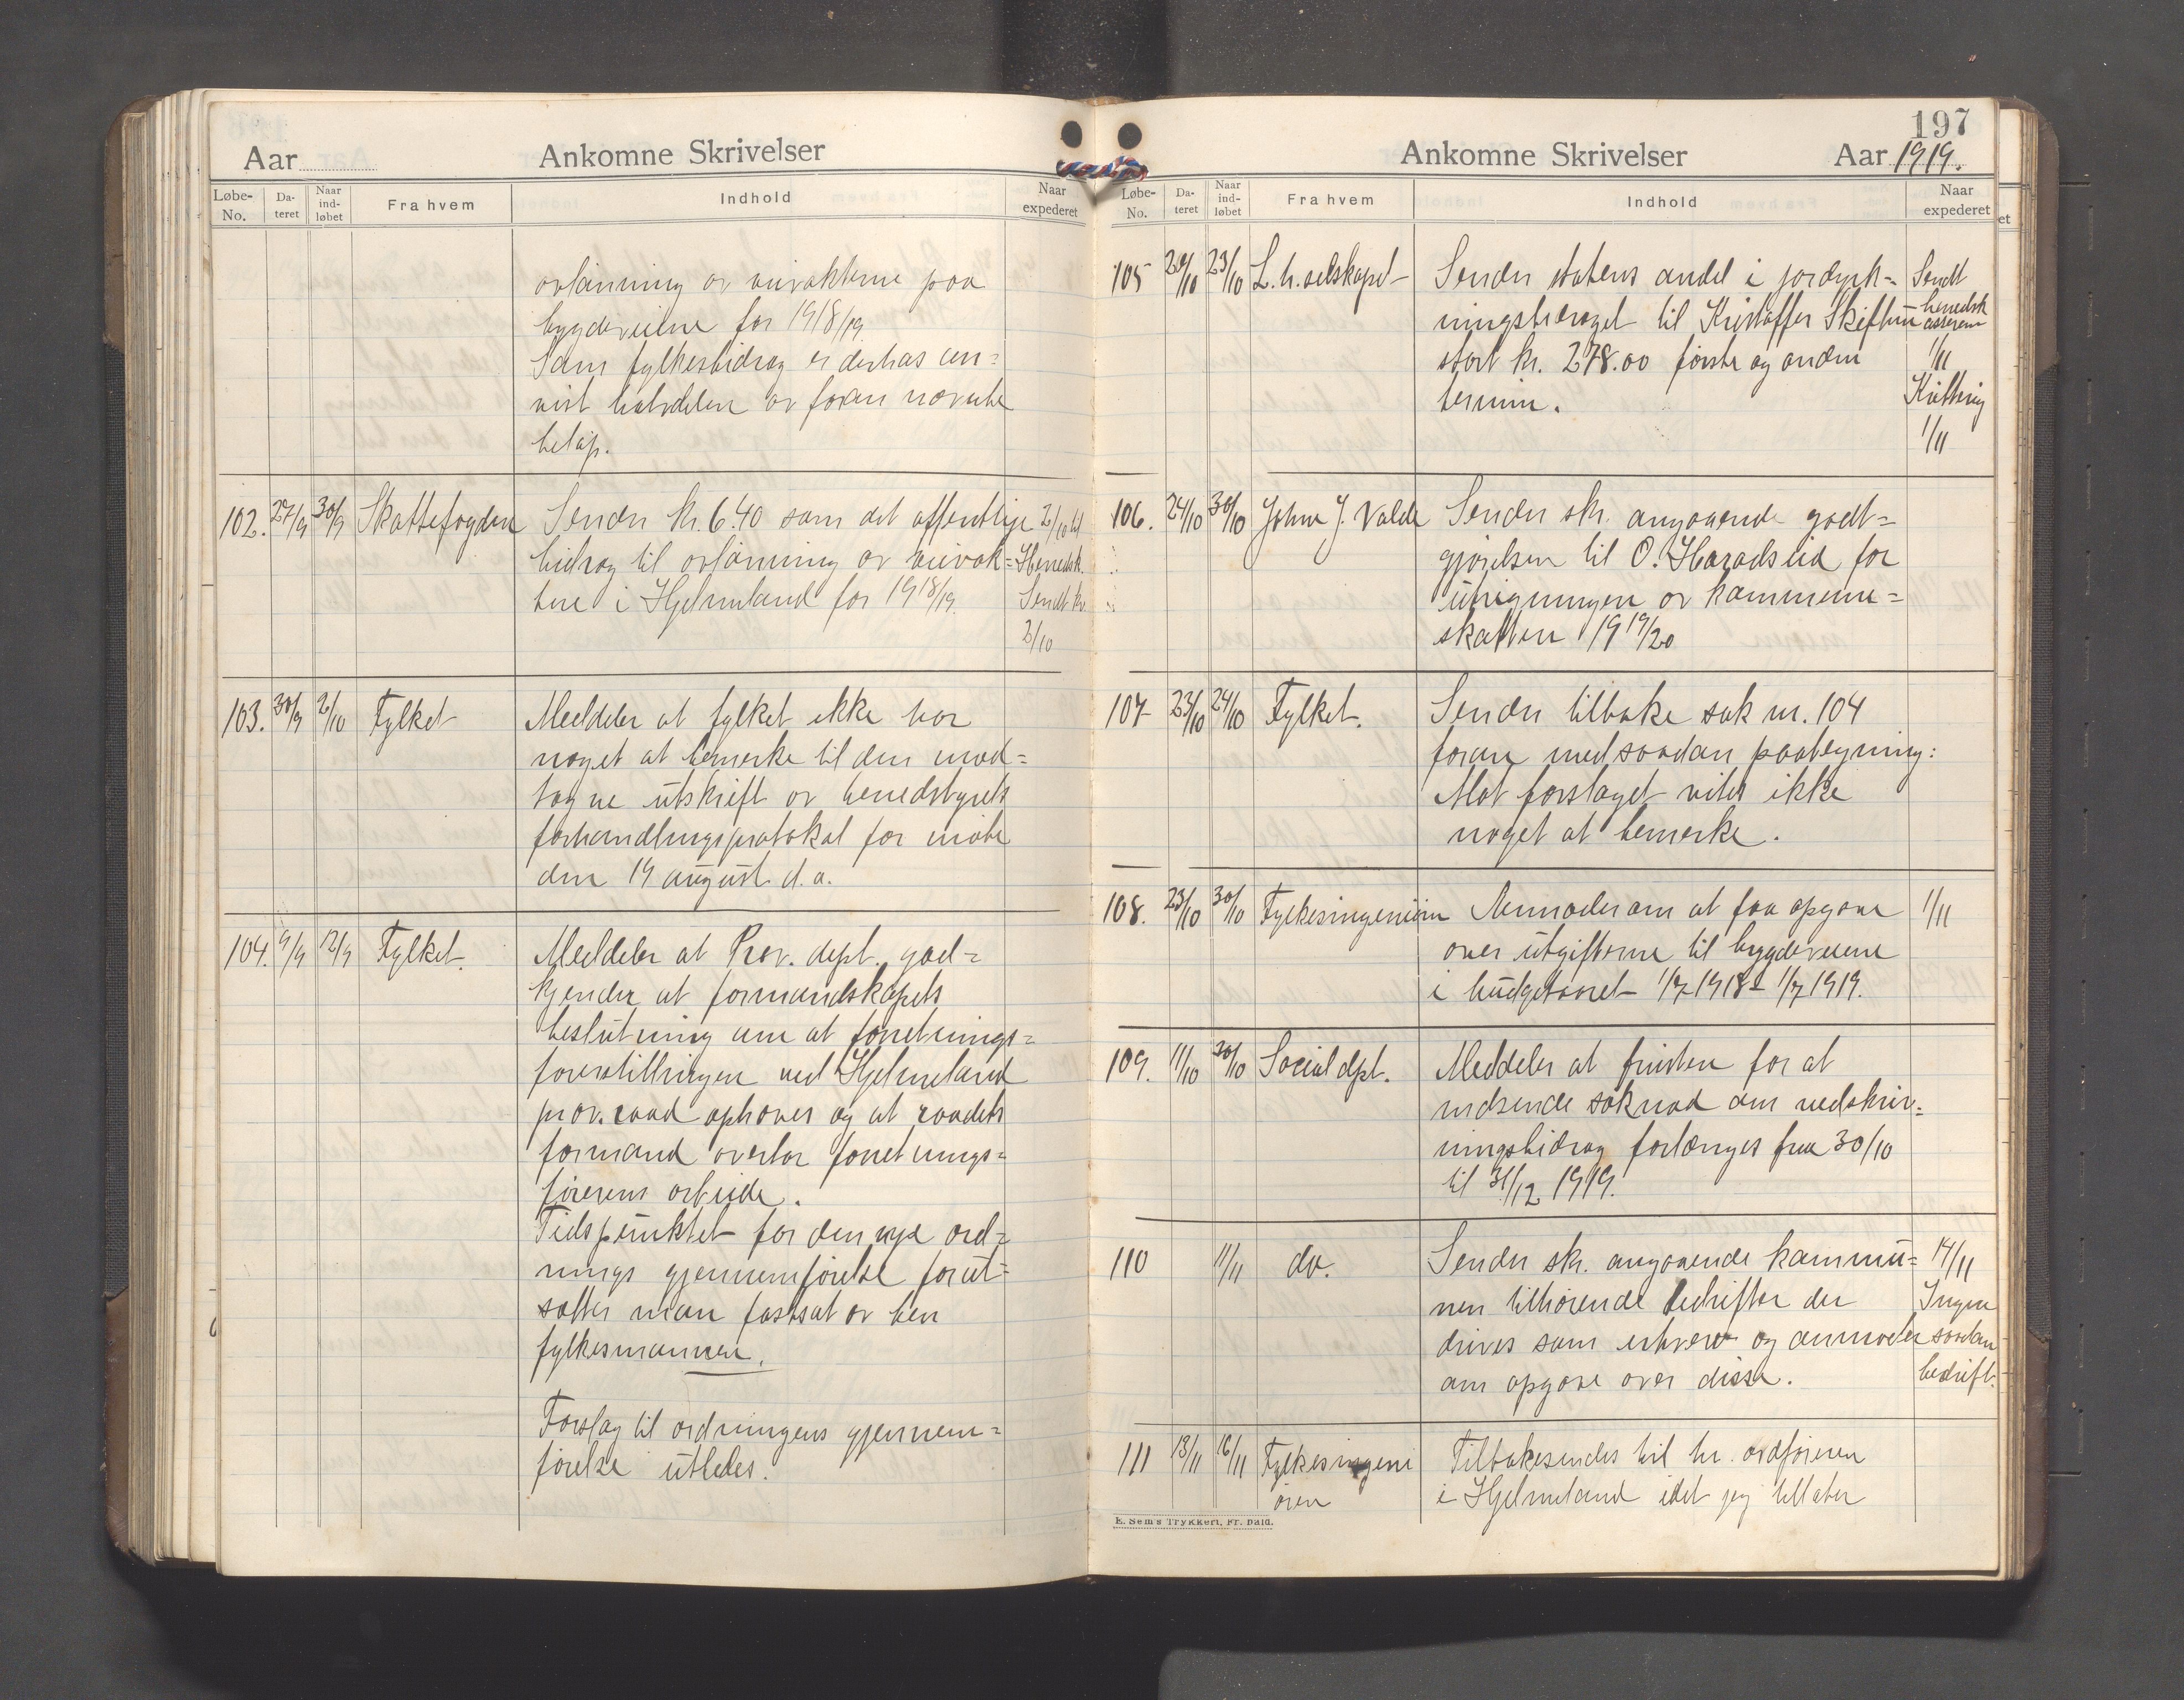 Aar
Ankomne Skrivelser
Løbe-No. Dateret Naar indløbet Fra hvem Indhold Naar expederet
avlønning av veivokterne paa
bygdeveiene for 1918/19.
Som fylkesbidrag er derhos an=
vist halvdelen av foran nævnte
beløp.
102. 27/9 30/9 Skattefogden Sender kr. 6.40 som det offentlige 2/10 til
bidrag til avlønning av veivok= Herredsk.
tere i Hjelmeland for 1918/19. Sendt kv.
2/10
103. 30/9 2/10 Fylket Meddeler at fylket ikke har
noget at bemerke til den mod=
tagne utskrift av herredstyrets
forhandlingsprotokol for møte
den 19 august d.a.
104. 9/9 12/9 Fylket. Meddeler at Prov. dept. god=
kjender at formandskapets
beslutning om at forretnings=
førerstillingen ved Hjelmeland
prov.raad ophæves og at raadets
formand overtar forretnings=
førerens arbeide.
Tidspunktet for den nye ord=
nings gjennemførelse forut=
sætter man fastsat av herr
fylkesmannen.
Forslag til ordningens gjennem=
førelse utbedes.
197
Ankomne Skrivelser
Aar 1919.
Løbe-No. Dateret Naar indløbet Fra hvem Indhold Naar expederet
105 20/10 23/10 L.h.selskapet Sender statens andel i jorddyrk= Sendt
ningsbidraget til Kristoffer Skiftun herredsk
stort kr. 278.00 første og anden 1/11
termin. Kvittering
1/11
106. 24/10 30/10 John J. Valde Sender skr. angaaende godt=
gjørelsen til O. Haradseid for
utrigningen av kommune=
skatten 1919/20
107 23/10 24/10 Fylket. Sender tilbake sak nr. 104
foran med saadan paategning:
Mot forslaget vites ikke
noget at bemerke.
108. 23/10 30/10 Fylkesingeniøren Anmoder om at faa opgave 1/11
over utgifterne til bygdeveiene
i budgetaaret 1/7 1918 - 1/7 1919.
109. 11/10 30/10 Social dpt. Meddeler at fristen for at
indsende søknad om nedskriv=
ningsbidrag forlænges fra 30/10
til 31/12 1919.
110 11/11 do. Sender skr. angaaende kommu= 14/11
nen tilhørende bedrifter der Ingen
drives som erhverv og anmoder saadan
om opgave over disse. bedrift.
111 13/11 16/11 Fylkesingeni Tilbakesendes til hr. ordføreren
øren i Hjelmeland idet jeg tillater
E. Sem's Trykkeri, Fr.hald.